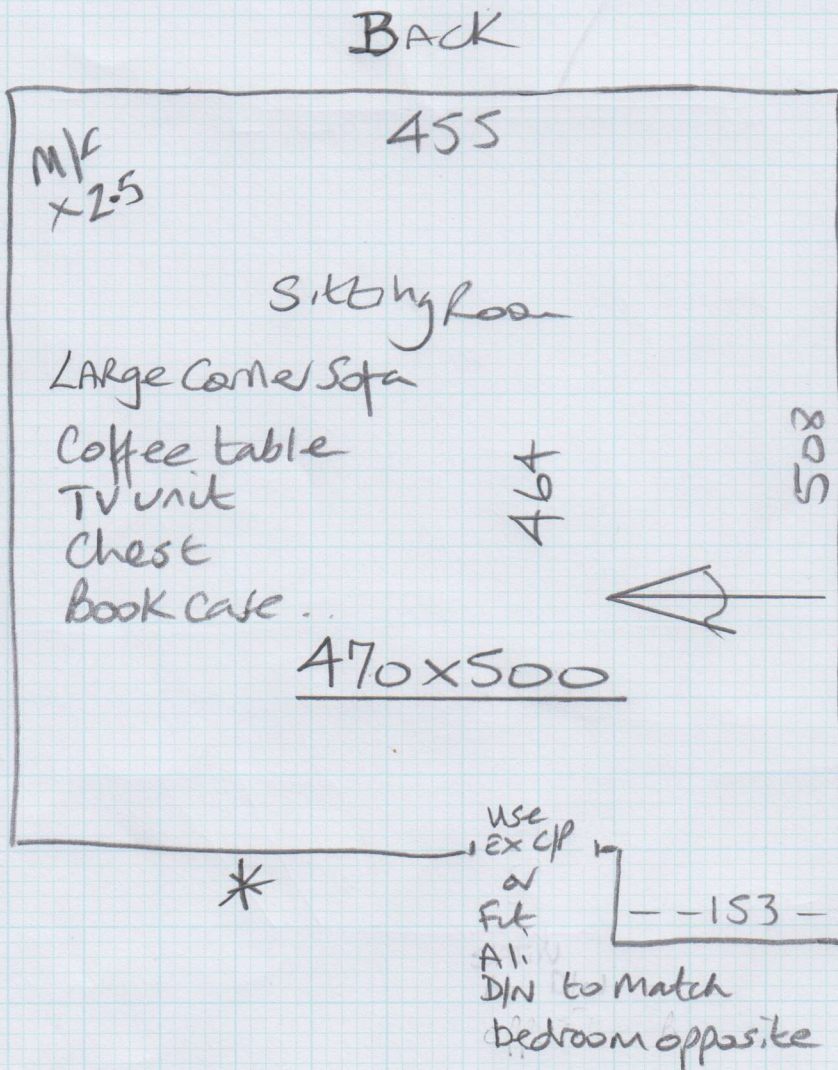 BACK
455
M/F
x 2.5
Sitting Room
LARge Corner Sofa
Coffee table
TV unit
Chest
Book Case .
464
508
470x500
use
EX C/P
or
Fit
Ali
D/N to match
bedroom opposite
*
- - 153 -